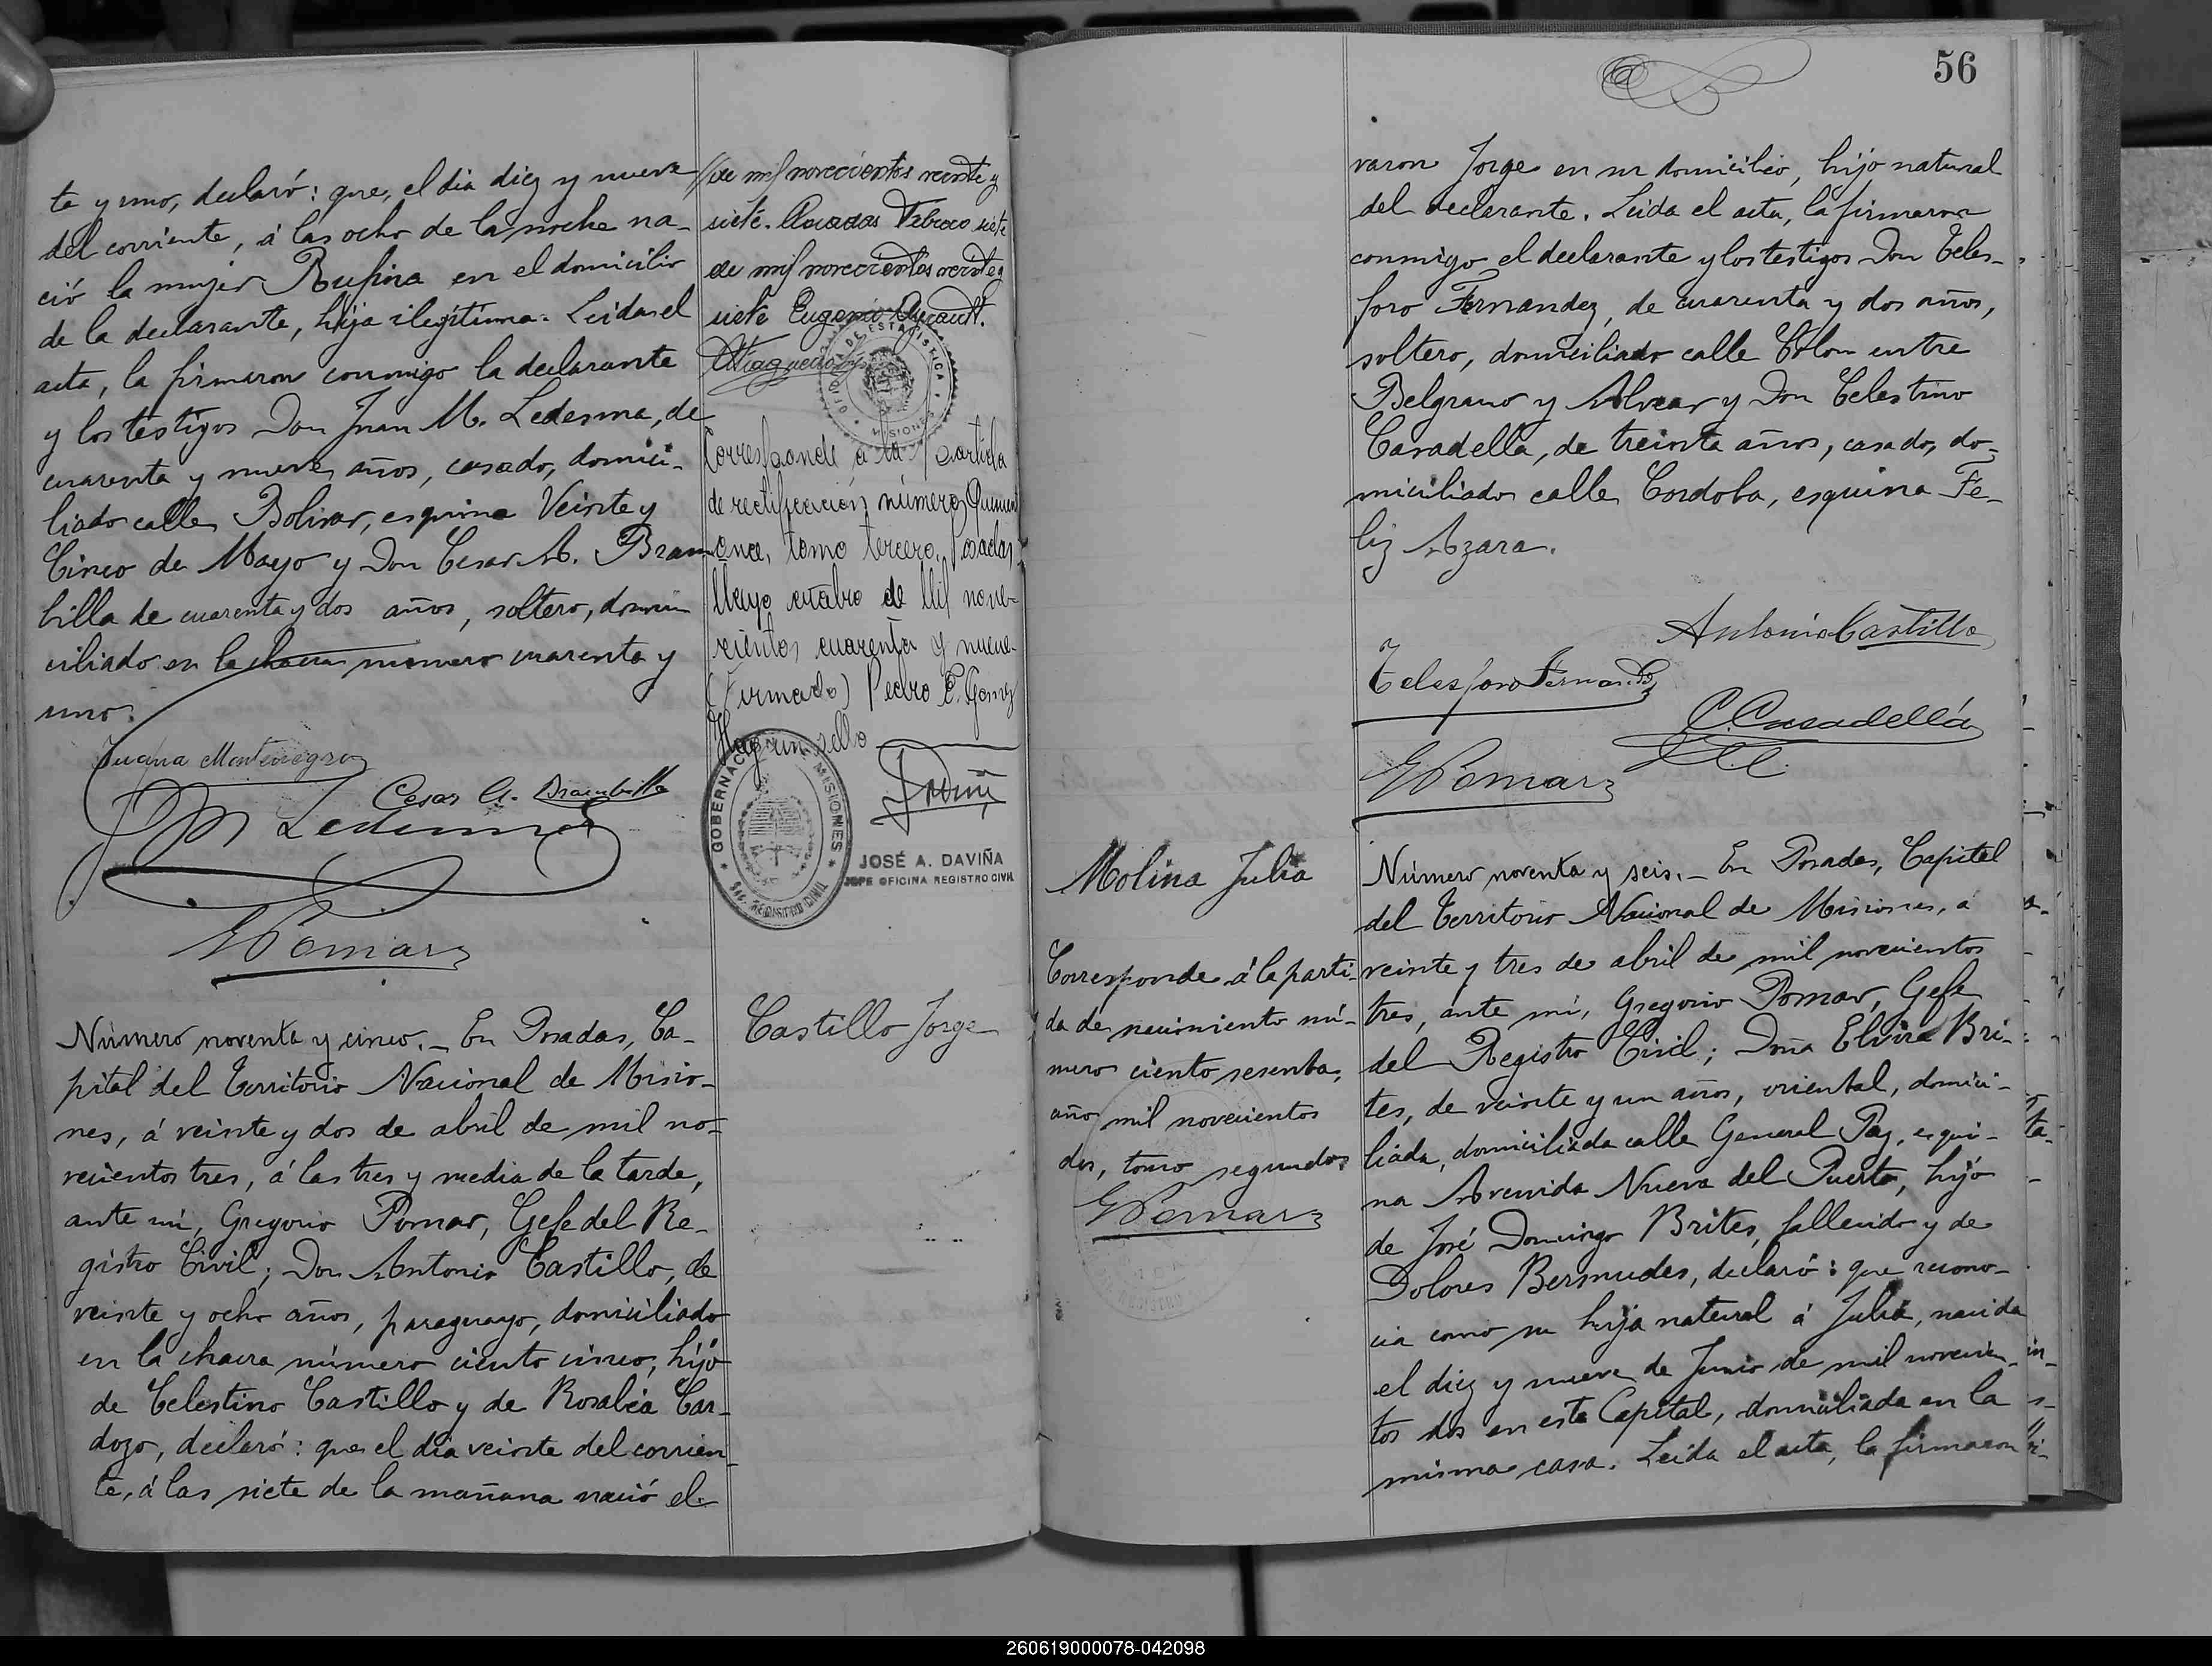 te y uno, declaró: que, el dia diez y nueve
del corriente, á las ocho de la noche na-
ció la mujer Rufina en el domicilio
de la declarante, hija ilegítima. Leida el
acta, la firmaron conmigo la declarante
y los testigos Don Juan M. Ledesma, de
cuarenta y nueve años, casado, domici-
liado calle Bolivar, esquina Veinte y
Cinco de Mayo y Don Cesar A. Bram
billa de cuarenta y dos años, soltero, domi
ciliado en la chacra número cuarenta y
uno.
Juana Montenegro
Cesar A. Brambilla
J M Ledesma
G Pomar
Número noventa y cinco. _ En Posadas, Ca-
pital del Territorio Nacional de Misio-
nes, á veinte y dos de abril de mil no-
vecientos tres, á las tres y media de la tarde,
ante mi, Gregorio Pomar, Gefe del Re-
gistro Civil; Don Antonio Castillo, de
veinte y ocho años, paraguayo, domiciliado
en la chacra número ciento cinco, hijo
de Celestino Castillo y de Rosalia Car-
dozo, declaró: que el dia veinte del corrien-
te, á las siete de la mañana nació el
//de mil novecientos veinte y
siete. Posadas Febrero siete
de mil novecientos veinte y
siete Eugenio
Corresponde a la partida
de rectificación número Quinient
once, tomo tercero. Posadas
Mayo cuatro de Mil nove-
cientos cuarenta y nueve-
(Firmado) Pedro E. Gomez
Hay un sello
GOBERNACION DE MISIONES
REGISTRO CIVIL
JOSÉ A. DAVIÑA
JEFE OFICINA REGISTRO CIVIL
Castillo Jorge
56
varon Jorge en su domicilio, hijo natural
del declarante. Leida el acta, la firmaron
conmigo el declarante y los testigos Don Teles-
foro Fernandez, de cuarenta y dos años,
soltero, domiciliado calle Colon entre
Belgrano y Alvear y Don Celestino
Casadella, de treinta años, casado, do-
miciliado calle Cordoba, esquina Fe-
liz Azara.
Antonio Castillo
Telesforo Fernandez
C. Casadellá
G Pomar
Molina Julia
Corresponde á la parti-
da de nacimiento nú-
mero ciento sesenta,
año mil novecientos
dos, tomo segundo
G Pomar
Número noventa y seis. _ En Posadas, Capital
del Territorio Nacional de Misiones, á
veinte y tres de abril de mil novecientos
tres, ante mi, Gregorio Pomar, Gefe
del Registro Civil; Doña Elvira Bri-
tes, de veinte y un años, oriental, domici-
liada, domiciliada calle General Paz, esqui-
na Avenida Nueva del Puerto, hijo
de José Domingo Brites, fallecido y de
Dolores Bermudes, declaró: que recono-
cia como su hija natural á Julia, nacida
el diez y nueve de Junio de mil novecien-
tos dos en esta Capital, domiciliada en la
misma casa. Leida el acta, la firmaron
260619000078-042098